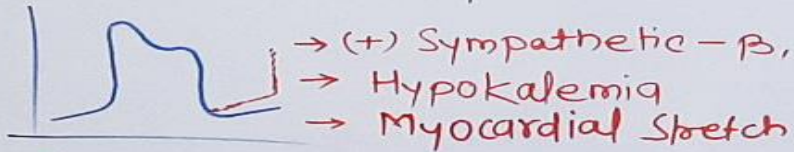 → (+) Sympathetic - β,
→ Hypokalemia
→ Myocardial Stretch